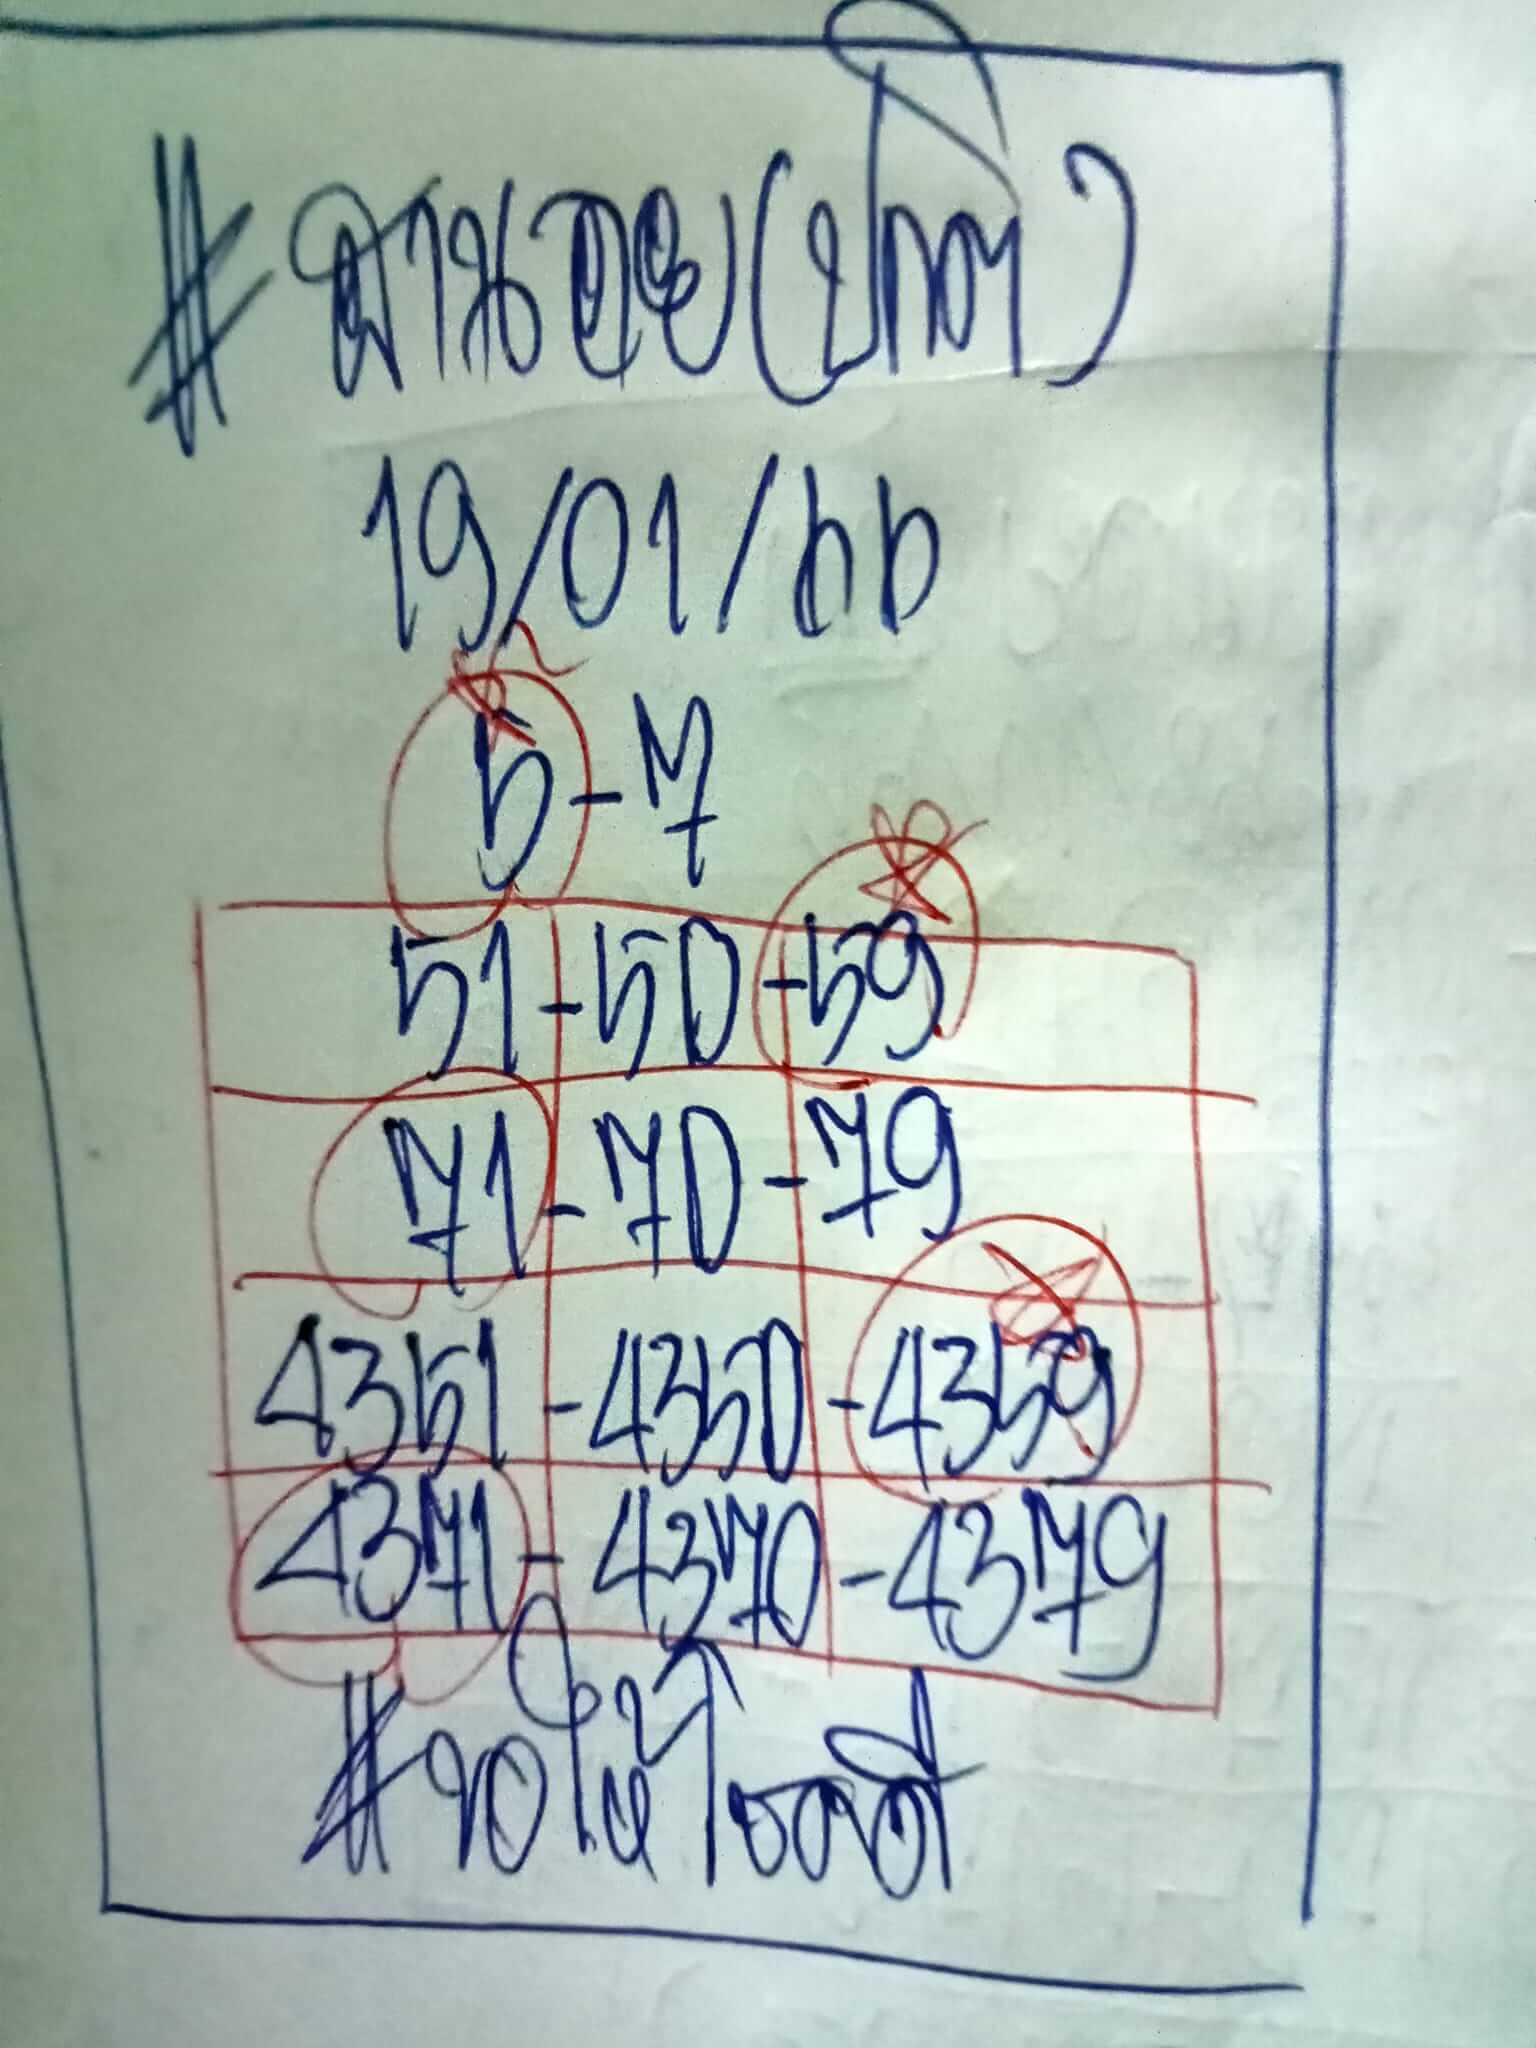 #ฮานอย(ปกติ)
19/01/66
5-7
51-50-59
71-70-79
4351-4350-4359
4371-4370-4379
#ขอให้โชคดี